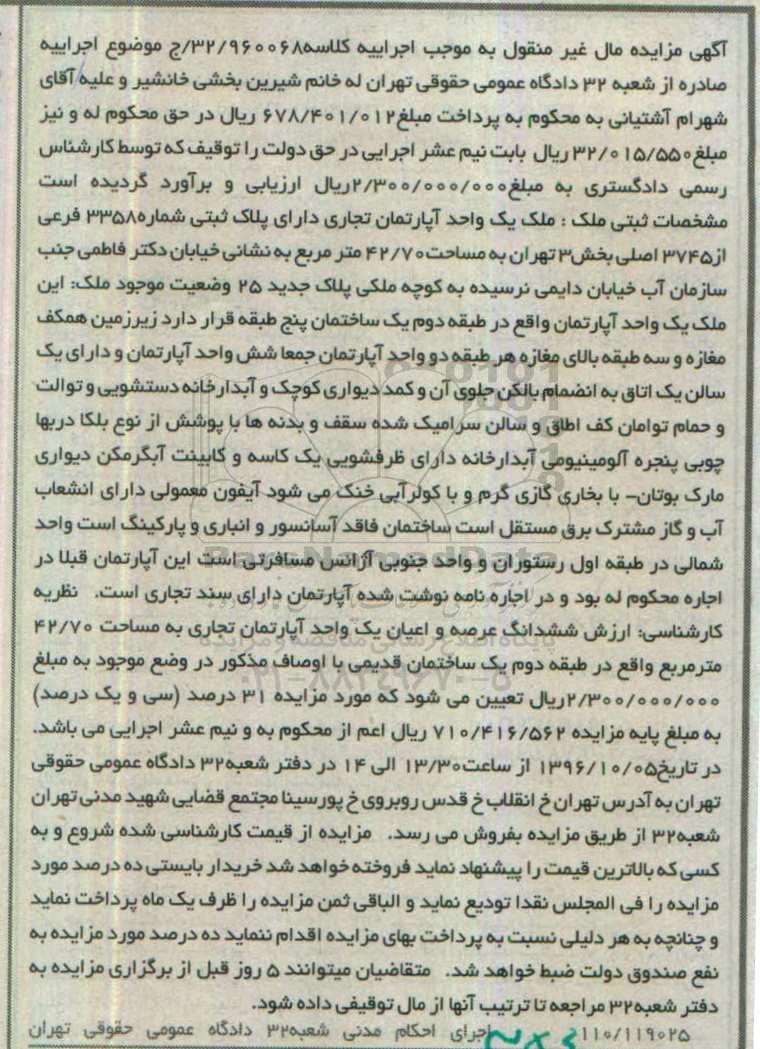 آگهی مزایده مال غیر منقول به موجب اجراییه کلاسه۳۲/۹۶۰۰۶۸/ج موضوع اجراییه
صادره از شعبه ۳۲ دادگاه عمومی حقوقی تهران له خانم شیرین بخشی خانشیر و علیه آقای
شهرام آشتیانی به محکوم به پرداخت مبلغ۶۷۸/۴۰۱/۰۱۲ ریال در حق محکوم له و نیز
مبلغ۳۲/۰۱۵/۵۵۰ ریال بابت نیم عشر اجرایی در حق دولت را توقیف که توسط کارشناس
رسمی دادگستری به مبلغ۲/۳۰۰/۰۰۰/۰۰۰ریال ارزیابی و برآورد گردیده است
مشخصات ثبتی ملک : ملک یک واحد آپارتمان تجاری دارای پلاک ثبتی شماره۳۳۵۸ فرعی
از۳۷۴۵ اصلی بخش۳ تهران به مساحت۴۲/۷۰ متر مربع به نشانی خیابان دکتر فاطمی جنب
سازمان آب خیابان دایمی نرسیده به کوچه ملکی پلاک جدید ۲۵ وضعیت موجود ملک: این
ملک یک واحد آپارتمان واقع در طبقه دوم یک ساختمان پنج طبقه قرار دارد زیرزمین همکف
مغازه و سه طبقه بالای مغازه هر طبقه دو واحد آپارتمان جمعا شش واحد آپارتمان و دارای یک
سالن یک اتاق به انضمام بالکن جلوی آن و کمد دیواری کوچک و آبدارخانه دستشویی و توالت
و حمام توامان کف اطاق و سالن سرامیک شده سقف و بدنه ها با پوشش از نوع بلکا دربها
چوبی پنجره آلومینیومی آبدارخانه دارای ظرفشویی یک کاسه و کابینت آبگرمکن دیواری
مارک بوتان- با بخاری گازی گرم و با کولرآبی خنک می شود آیفون معمولی دارای انشعاب
آب و گاز مشترک برق مستقل است ساختمان فاقد آسانسور و انباری و پارکینگ است واحد
شمالی در طبقه اول رستوران و واحد جنوبی آژانس مسافرتی است این آپارتمان قبلا در
اجاره محکوم له بود و در اجاره نامه نوشت شده آپارتمان دارای سند تجاری است. نظریه
کارشناسی: ارزش ششدانگ عرصه و اعیان یک واحد آپارتمان تجاری به مساحت ۴۲/۷۰
مترمربع واقع در طبقه دوم یک ساختمان قدیمی با اوصاف مذکور در وضع موجود به مبلغ
۲/۳۰۰/۰۰۰/۰۰۰ریال تعیین می شود که مورد مزایده ۳۱ درصد (سی و یک درصد)
به مبلغ پایه مزایده ۷۱۰/۴۱۶/۵۶۲ ریال اعم از محکوم به و نیم عشر اجرایی می باشد.
در تاریخ۱۳۹۶/۱۰/۰۵ از ساعت۱۳/۳۰ الی ۱۴ در دفتر شعبه۳۲ دادگاه عمومی حقوقی
تهران به آدرس تهران خ انقلاب خ قدس روبروی خ پورسینا مجتمع قضایی شهید مدنی تهران
شعبه۳۲ از طریق مزایده بفروش می رسد. مزایده از قیمت کارشناسی شده شروع و به
کسی که بالاترین قیمت را پیشنهاد نماید فروخته خواهد شد خریدار بایستی ده درصد مورد
مزایده را فی المجلس نقدا تودیع نماید و الباقی ثمن مزایده را ظرف یک ماه پرداخت نماید
و چنانچه به هر دلیلی نسبت به پرداخت بهای مزایده اقدام ننماید ده درصد مورد مزایده به
نفع صندوق دولت ضبط خواهد شد. متقاضیان میتوانند ۵ روز قبل از برگزاری مزایده به
دفتر شعبه۳۲ مراجعه تا ترتیب آنها از مال توقیفی داده شود.
۱۱۰/۱۱۹۰۲۵ اجرای احکام مدنی شعبه۳۲ دادگاه عمومی حقوقی تهران
ParsNamadData